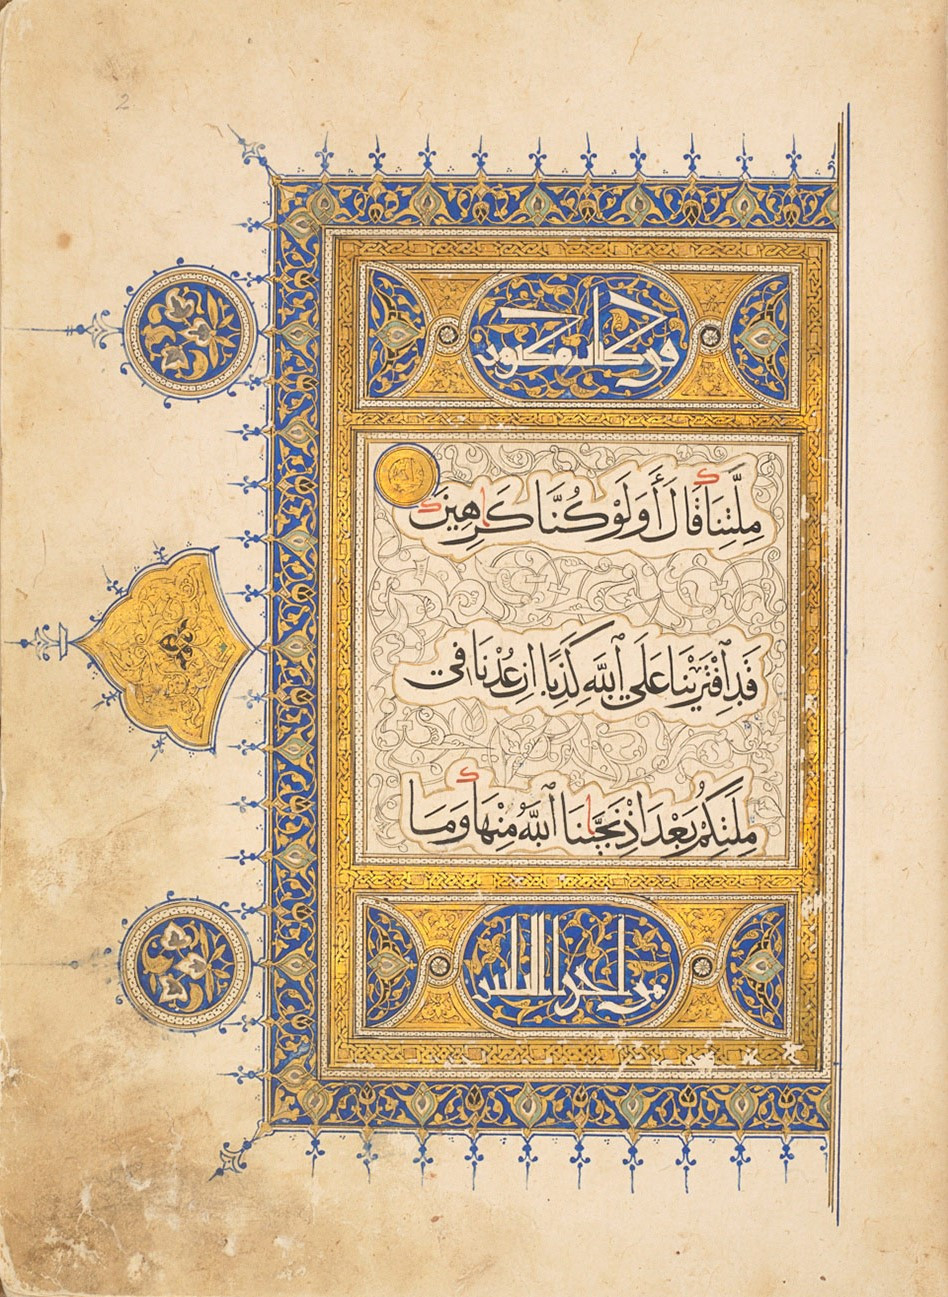 2
في كتاب مكنون
مِلَّتِنَا قَالَ أَوَلَوْ كُنَّا كَـٰرِهِينَ
قَدِ ٱفْتَرَيْنَا عَلَى ٱللَّهِ كَذِبًا اِنْ عُدْنَا فِي
مِلَّتِكُمْ بَعْدَ اِذْ نَجَّـٰنَا ٱللَّهُ مِنْهَا وَمَا
من اجزا الثلثين